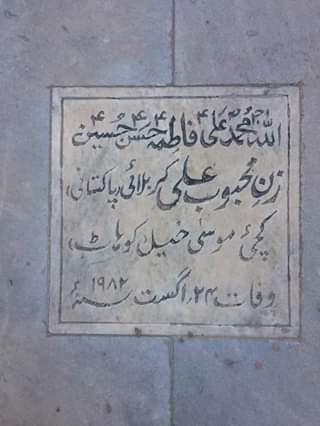 اللہ محمدؐ علیؑ فاطمہؑ حسنؑ حسینؑ
زنِ محبوب علی کربلائی (پاکستانی)
کچئ موسیٰ خیل کوہاٹ)
وفات ۲۴؍ اگست ۱۹۸۲ سنہء